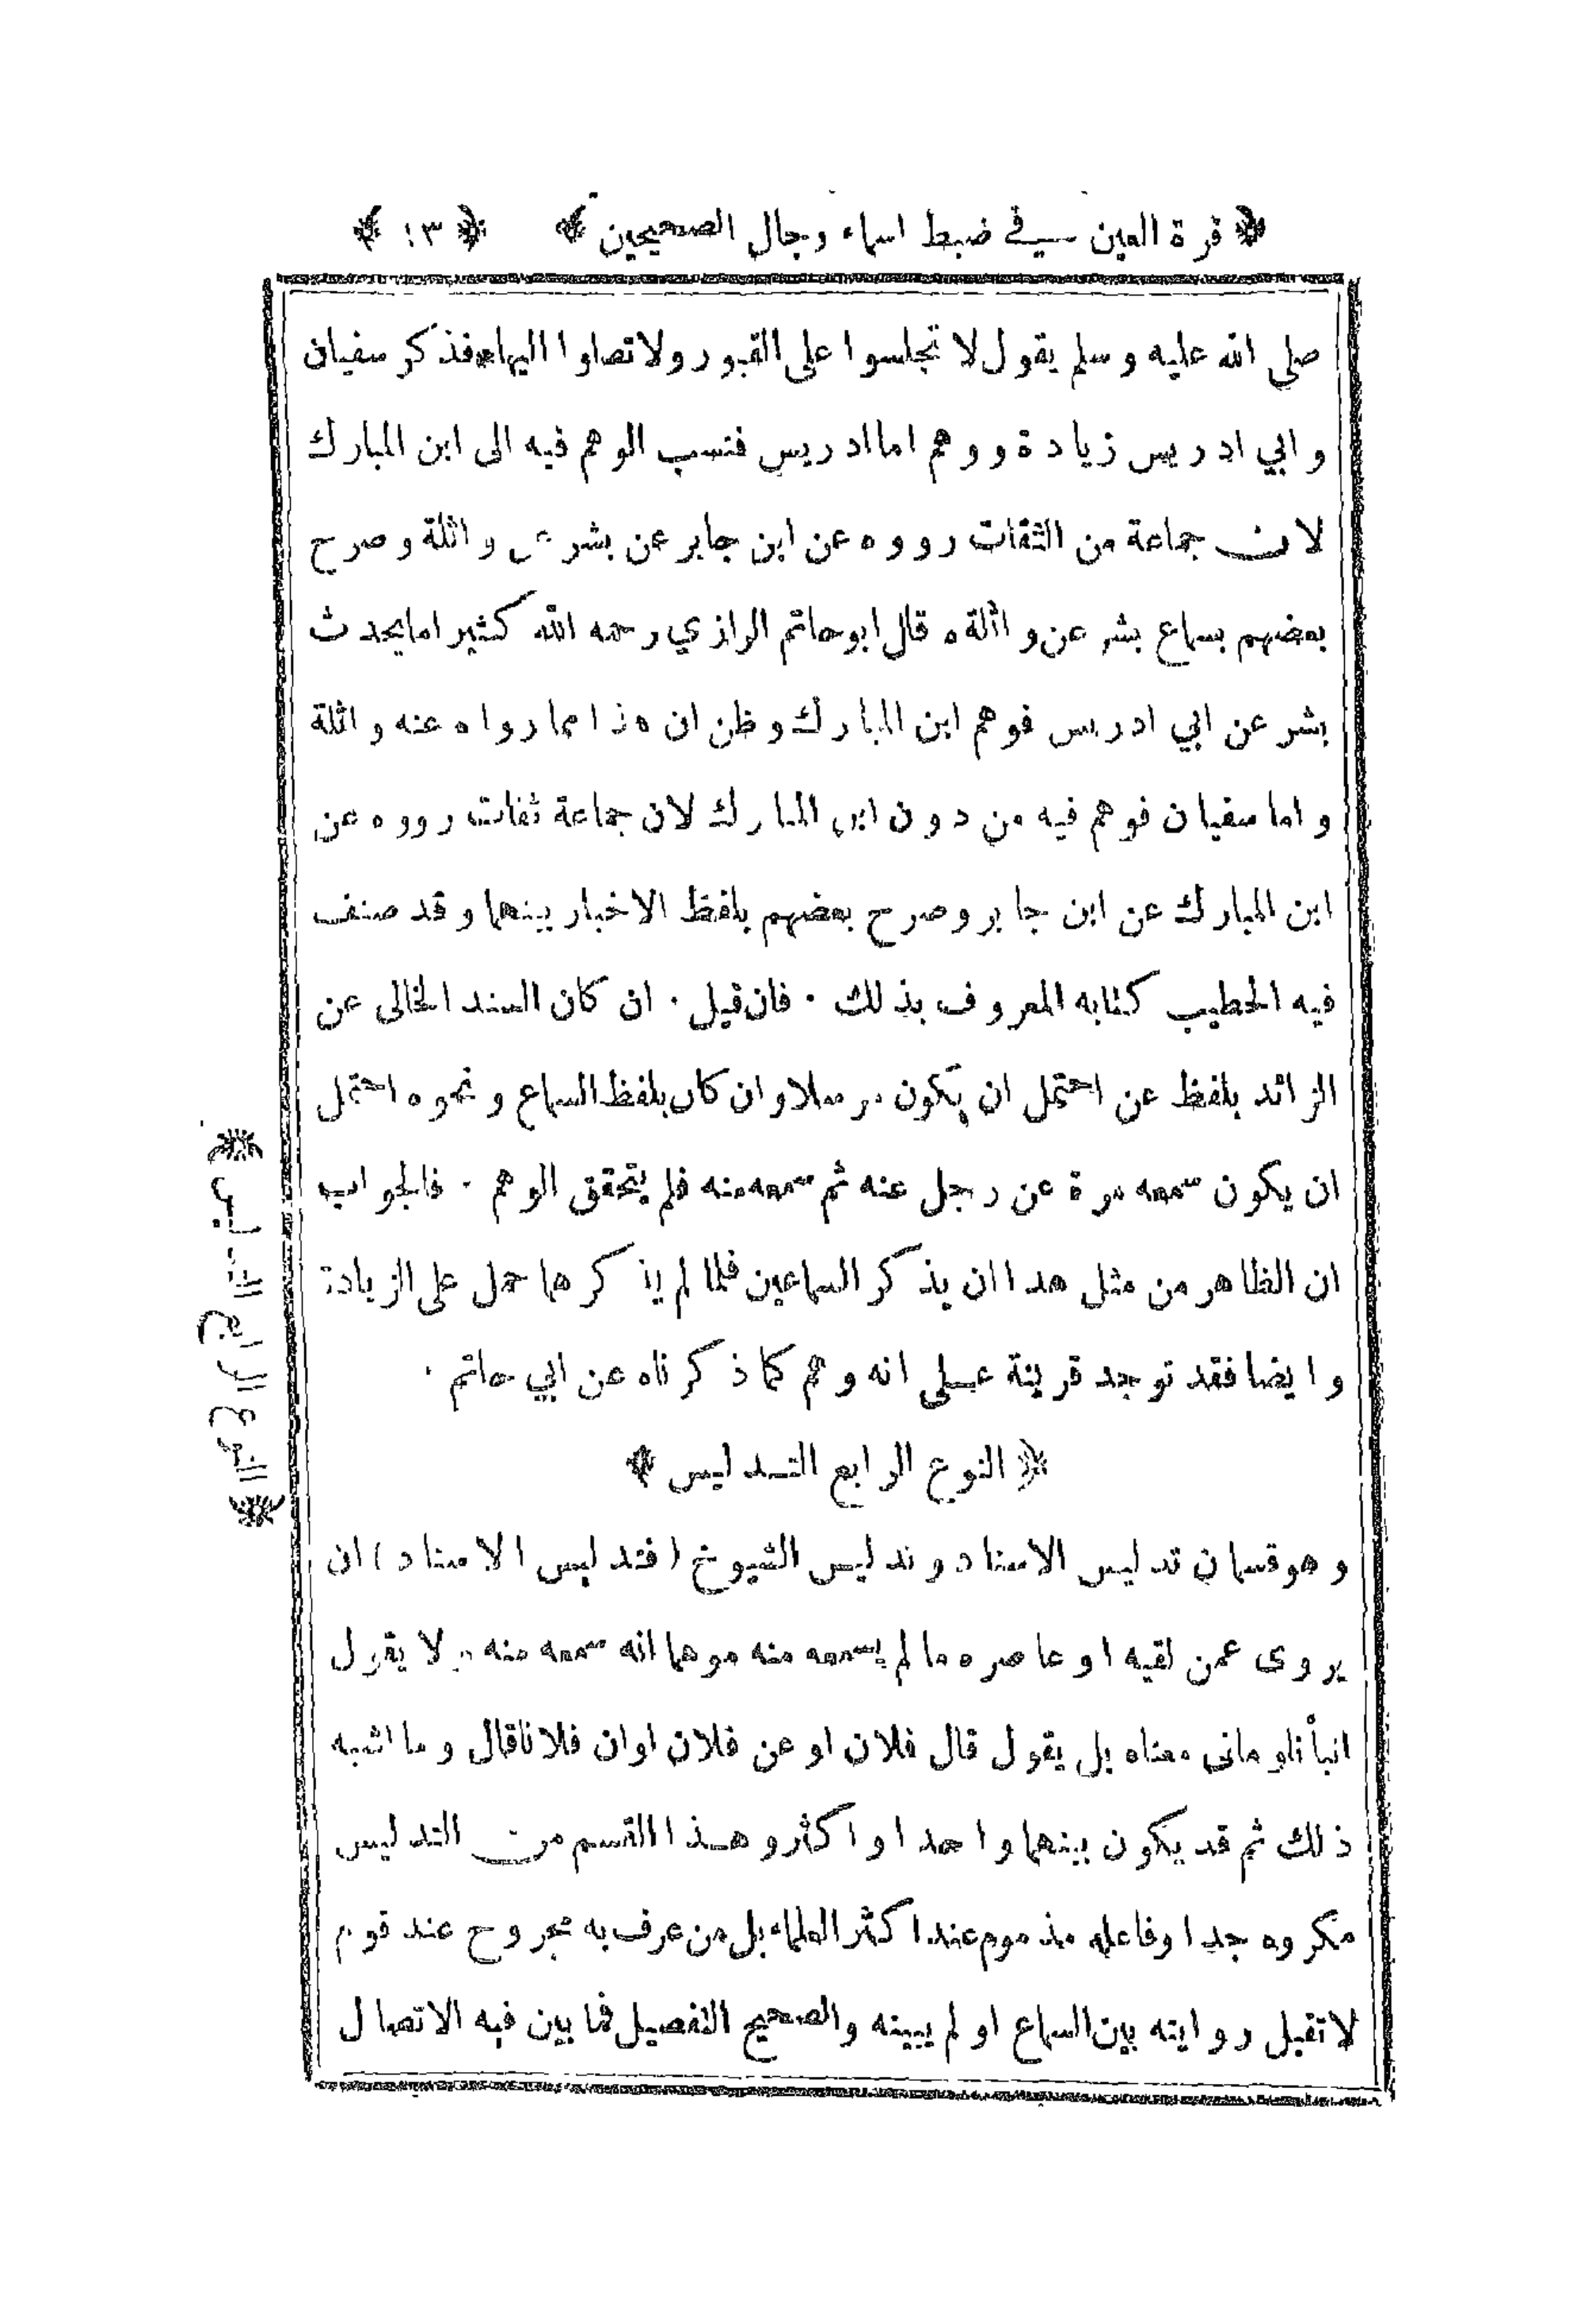 ﴿ قرة العين في ضبط اسماء رجال الصحيحين ﴾ ﴿ ١٣ ﴾
صلى الله عليه وسلم يقول لا تجلسوا على القبور ولا تصلوا اليها ٥ فذكر سفيان
وابي ادريس زيادة ووهم اما ادريس فنسب الوهم فيه الى ابن المبارك
لان جماعة من الثقات رووه عن ابن جابر عن بشر عن واثلة وصرح
بعضهم بسماع بشر عن واثلة ٥ قال ابو حاتم الرازي رحمه الله كثيرا ما يحدث
بشر عن ابي ادريس فوهم ابن المبارك وظن ان هذا مما رواه عنه واثلة
واما سفيان فوهم فيه من دون ابن المبارك لان جماعة ثقات رووه عن
ابن المبارك عن ابن جابر وصرح بعضهم بلفظ الاخبار بينهما وقد صنف
فيه الخطيب كتابه المعروف بذلك ٠ فان قيل ٠ ان كان السند الخالى عن
الزائد بلفظ عن احتمل ان يكون مرسلا وان كان بلفظ السماع ونحوه احتمل
ان يكون سمعه مرة عن رجل عنه ثم سمعه منه فلم يتحقق الوهم ٠ فالجواب
ان الظاهر من مثل هذا ان يذكر السماعين فلما لم يذكرهما حمل على الزيادة
وايضا فقد توجد قرينة على انه وهم كما ذكرناه عن ابي حاتم ٠
﴿ النوع الرابع التدليس ﴾
وهو قسمان تدليس الاسناد وتدليس الشيوخ (فتدليس الاسناد) ان
يروى عمن لقيه او عاصره ما لم يسمعه منه موهما انه سمعه منه ولا يقول
انبأنا وما فى معناه بل يقول قال فلان او عن فلان او ان فلانا قال وما اشبه
ذلك ثم قد يكون بينهما واحد او اكثر وهذا القسم من التدليس
مكروه جدا وفاعله مذموم عند اكثر العلماء بل من عرف به مجروح عند قوم
لا تقبل روايته بين السماع او لم يبينه والصحيح التفصيل فما بين فيه الاتصال
﴿ النوع الرابع التدليس ﴾